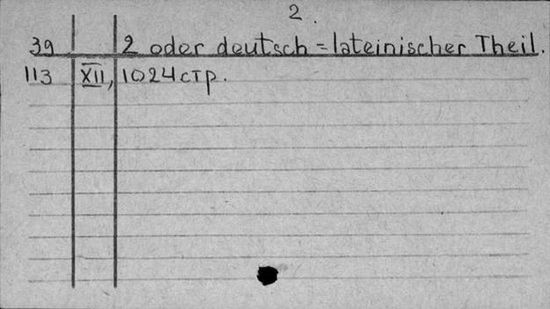 2.
39 2 oder deutsch=lateinischer Theil.
113 XII, 1024 стр.